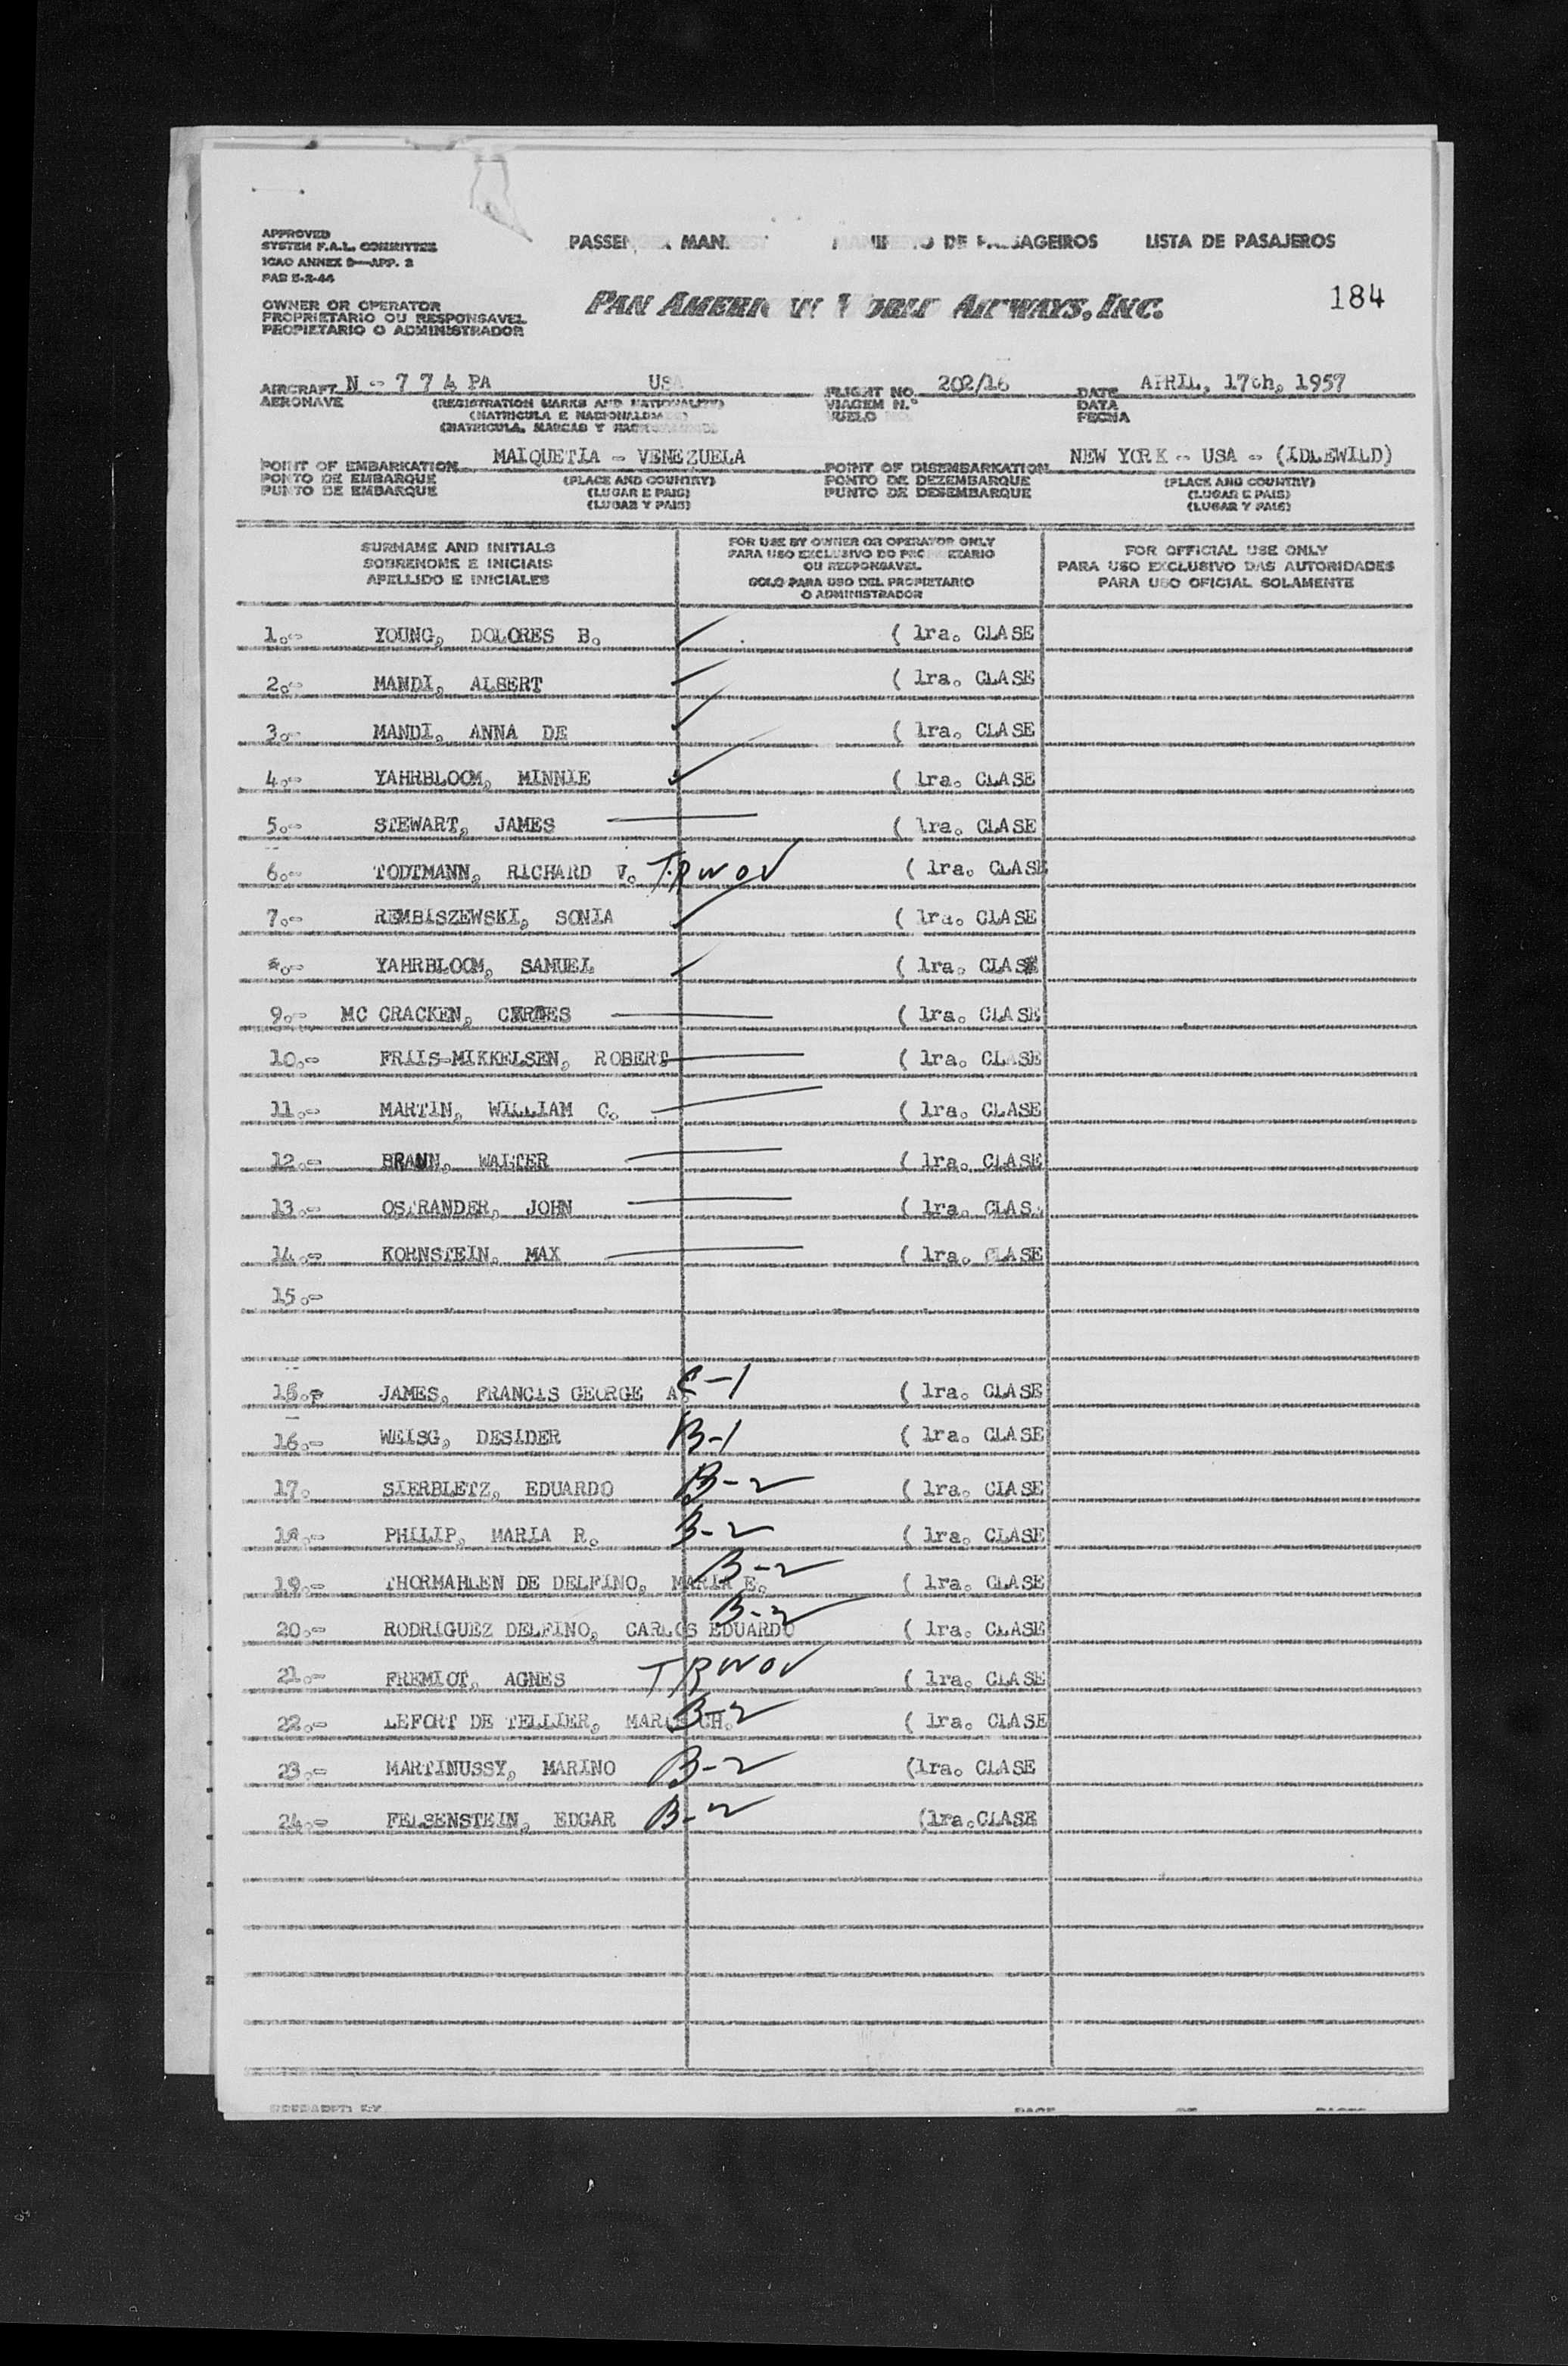 APPROVED
SYSTEM F.A.L. COMMITTEE
ICAO ANNEX 9—APP. 3
PAB 5-2-44
PASSENGER MANIFEST MANIFESTO DE PASSAGEIROS LISTA DE PASAJEROS
OWNER OR OPERATOR
PROPRIETARIO OU RESPONSAVEL
PROPIETARIO O ADMINISTRADOR
PAN AMERICAN WORLD AIRWAYS, INC.
184
AIRCRAFT N - 7 7 4 PA USA FLIGHT NO. 202/16 DATE APRIL, 17th, 1957
AERONAVE (REGISTRATION MARKS AND NATIONALITY) VIAGEM N.º DATA
(MATRICULA E NACIONALIDADE) VUELO FECHA
(MATRICULA, MARCAS Y NACIONALIDAD)
POINT OF EMBARKATION MAIQUETIA - VENEZUELA POINT OF DISEMBARKATION NEW YORK - USA - (IDLEWILD)
PONTO DE EMBARQUE (PLACE AND COUNTRY) PONTO DE DEZEMBARQUE (PLACE AND COUNTRY)
PUNTO DE EMBARQUE (LUGAR E PAIS) PUNTO DE DESEMBARQUE (LUGAR E PAIS)
(LUGAR Y PAIS) (LUGAR Y PAIS)
SURNAME AND INITIALS
SOBRENOME E INICIAIS
APELLIDO E INICIALES
FOR USE BY OWNER OR OPERATOR ONLY
PARA USO EXCLUSIVO DO PROPRIETARIO
OU RESPONSAVEL
SOLO PARA USO DEL PROPIETARIO
O ADMINISTRADOR
FOR OFFICIAL USE ONLY
PARA USO EXCLUSIVO DAS AUTORIDADES
PARA USO OFICIAL SOLAMENTE
1.- YOUNG, DOLORES B. ( 1ra. CLASE
2.- MANDI, ALBERT ( 1ra. CLASE
3.- MANDI, ANNA DE ( 1ra. CLASE
4.- YAHRBLOOM, MINNIE ( 1ra. CLASE
5.- STEWART, JAMES ( 1ra. CLASE
6.- TODTMANN, RICHARD V. TRWOV ( 1ra. CLASE
7.- REMBISZEWSKI, SONIA ( 1ra. CLASE
YAHRBLOOM, SAMUEL ( 1ra. CLASE
9.- MC CRACKEN, ( 1ra. CLASE
10.- FRIIS-MIKKELSEN, ROBERT ( 1ra. CLASE
11.- MARTIN, WILLIAM C. ( 1ra. CLASE
12.- BRAUN, WALTER ( 1ra. CLASE
13.- OSTRANDER, JOHN ( 1ra. CLASE
14.- KORNSTEIN, MAX ( 1ra. CLASE
15.-
15.- JAMES, FRANCIS GEORGE A. C-1 ( 1ra. CLASE
16.- WEISG, DESIDER B-1 ( 1ra. CLASE
17. SIERBLETZ, EDUARDO B-2 ( 1ra. CLASE
18.- PHILIP, MARIA R. B-2 ( 1ra. CLASE
19.- THORMAHLEN DE DELFINO, MARIA E. B-2 ( 1ra. CLASE
20.- RODRIGUEZ DELFINO, CARLOS EDUARDO B-2 ( 1ra. CLASE
21.- FREMIOT, AGNES TRWOV ( 1ra. CLASE
22.- LEFORT DE TELLIER, CH. B-2 ( 1ra. CLASE
23.- MARTINUSSY, MARINO B-2 (1ra. CLASE
24.- FELSENSTEIN, EDGAR B-2 (1ra.CLASE
PREPARED BY PAGE OF PAGES